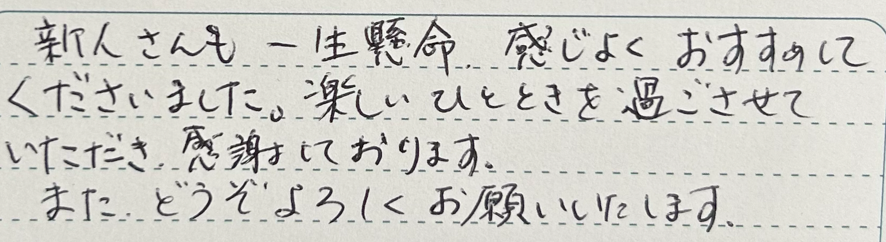 新人さんも一生懸命、感じよくおすすめして
くださいました。楽しいひとときを過ごさせて
いただき、感謝しております。
また、どうぞよろしくお願いいたします。